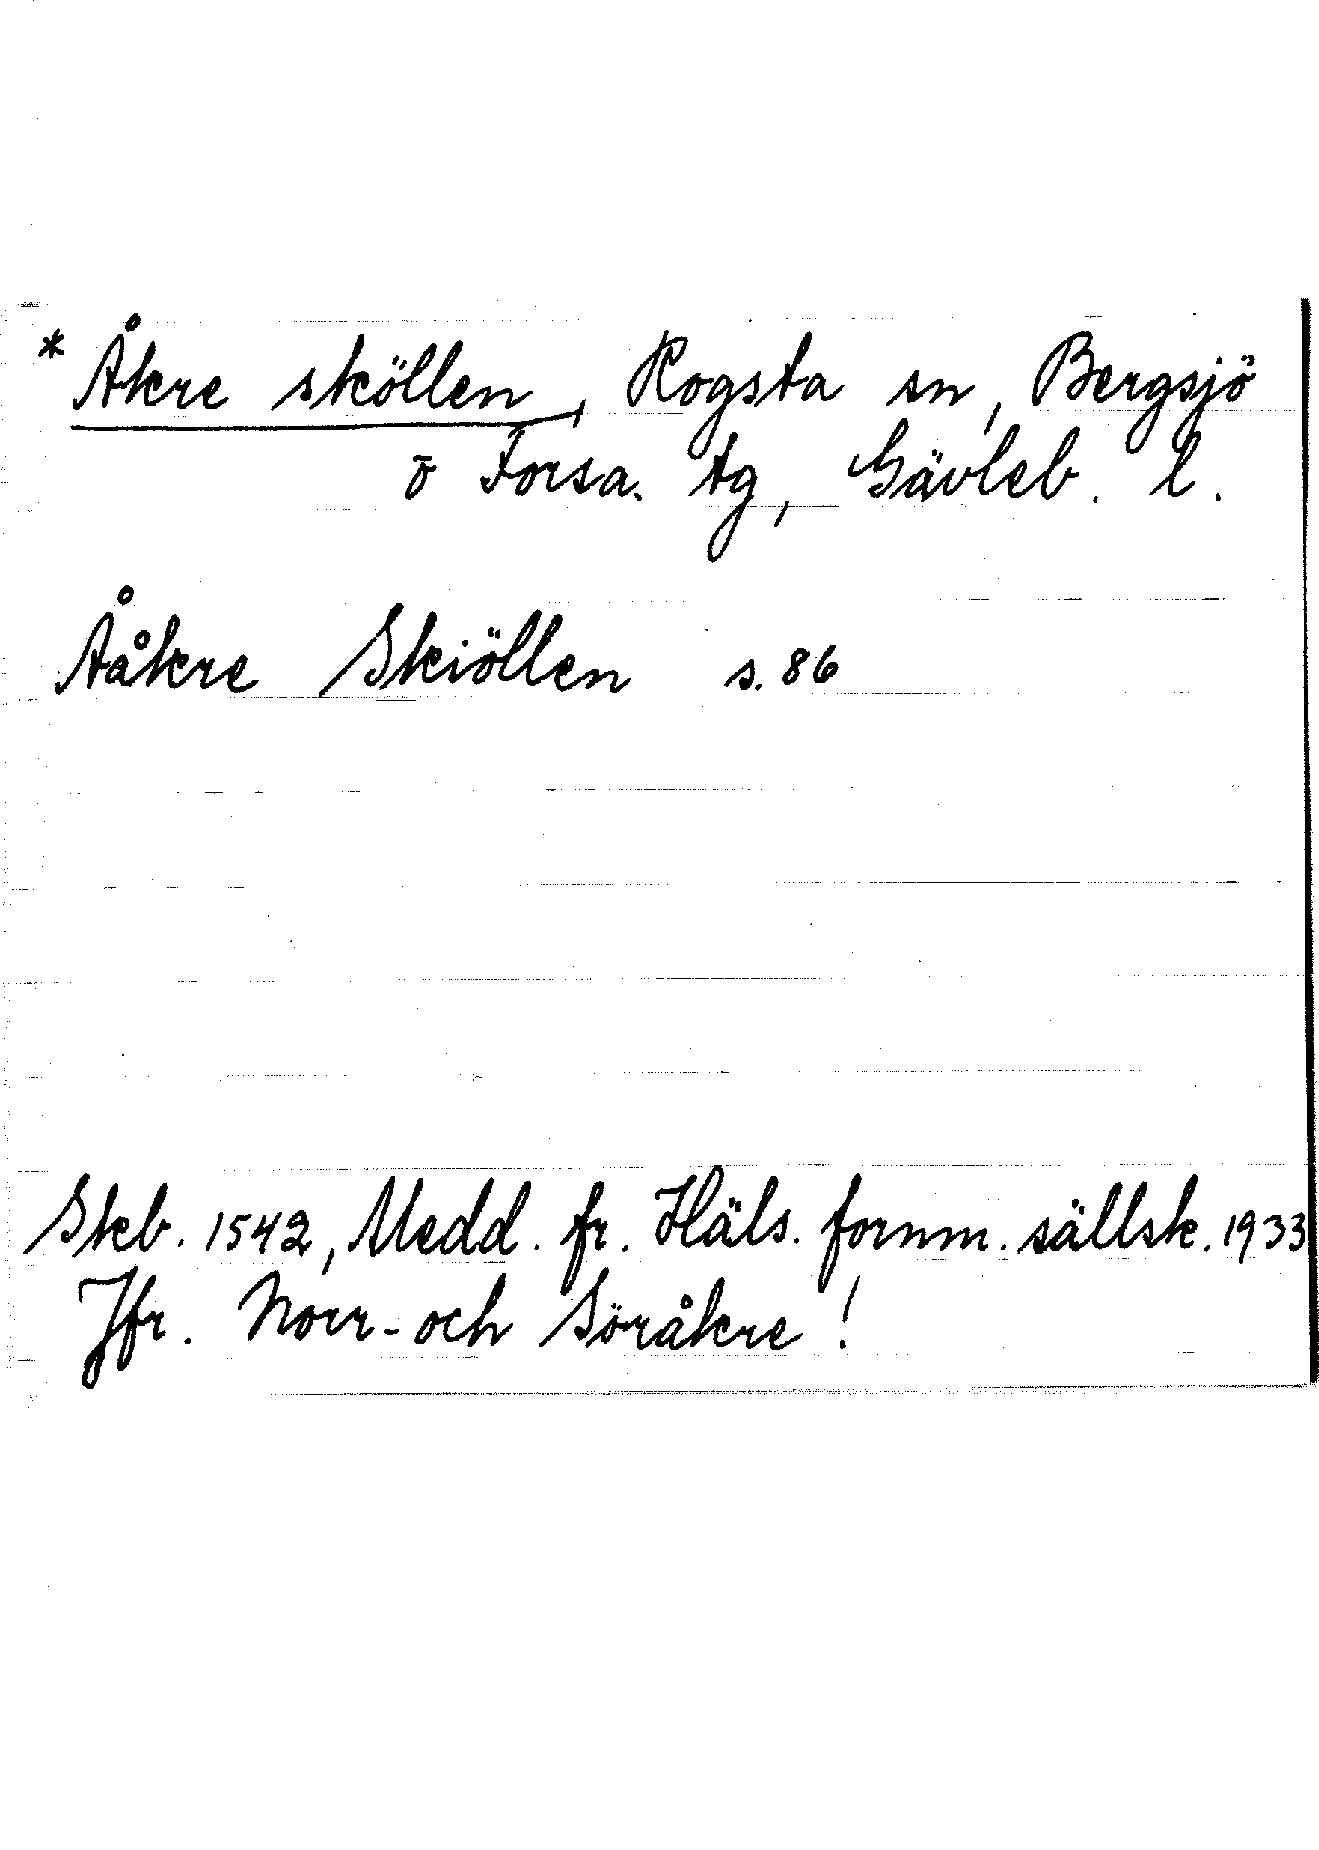 * Åkre sköllen, Rogsta sn, Bergsjö
o Forsa. tg, Gävleb. l.
Ååkre Skiöllen s. 86
Skb. 1542, Medd. fr. Häls. fornm. sällsk. 1933
Jfr. Norr- och Söråkre!